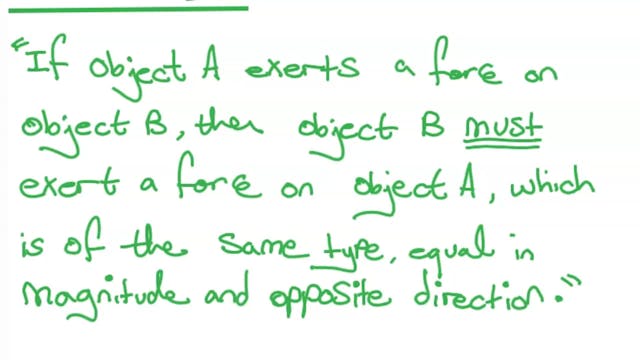 "If object A exerts a force on
object B, then object B must
exert a force on object A, which
is of the same type, equal in
magnitude and opposite direction."